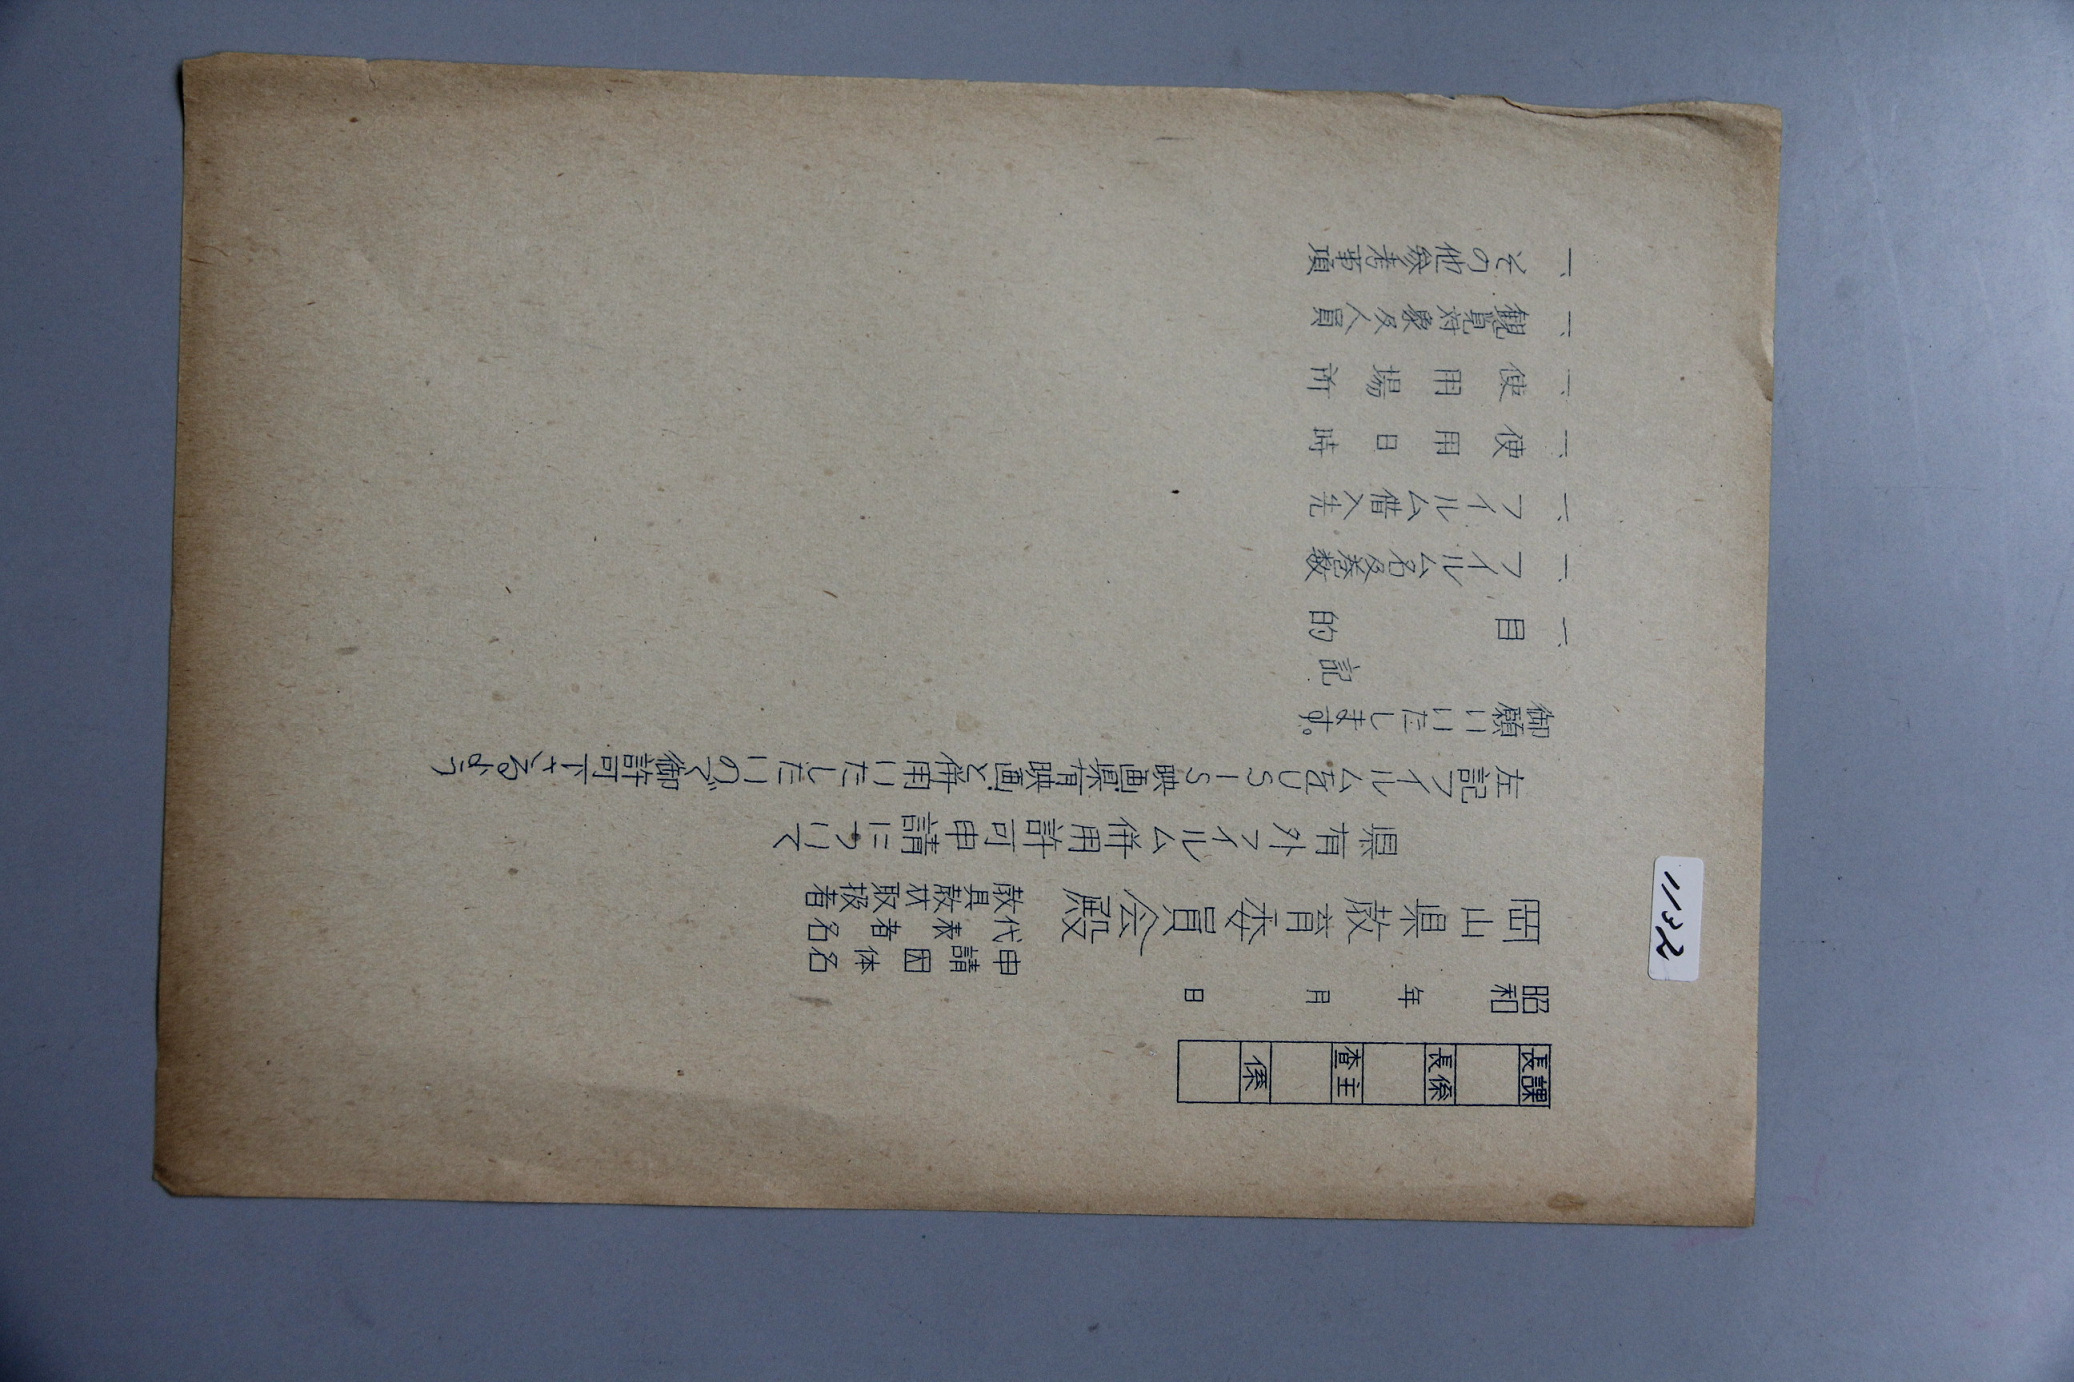 1132
課長
係長
主査
係
昭和　年　月　日
申請団体名
代表者名
教具教材取扱者
岡山県教育委員会殿
県有外フィルム併用許可申請について
左記フィルムをUSIS映画県有映画と併用いたしたいので御許可下さるよう
御願いいたします。
記
一、目的
一、フィルム名及巻数
一、フィルム借入先
一、使用日時
一、使用場所
一、観覧対象及人員
一、その他参考事項